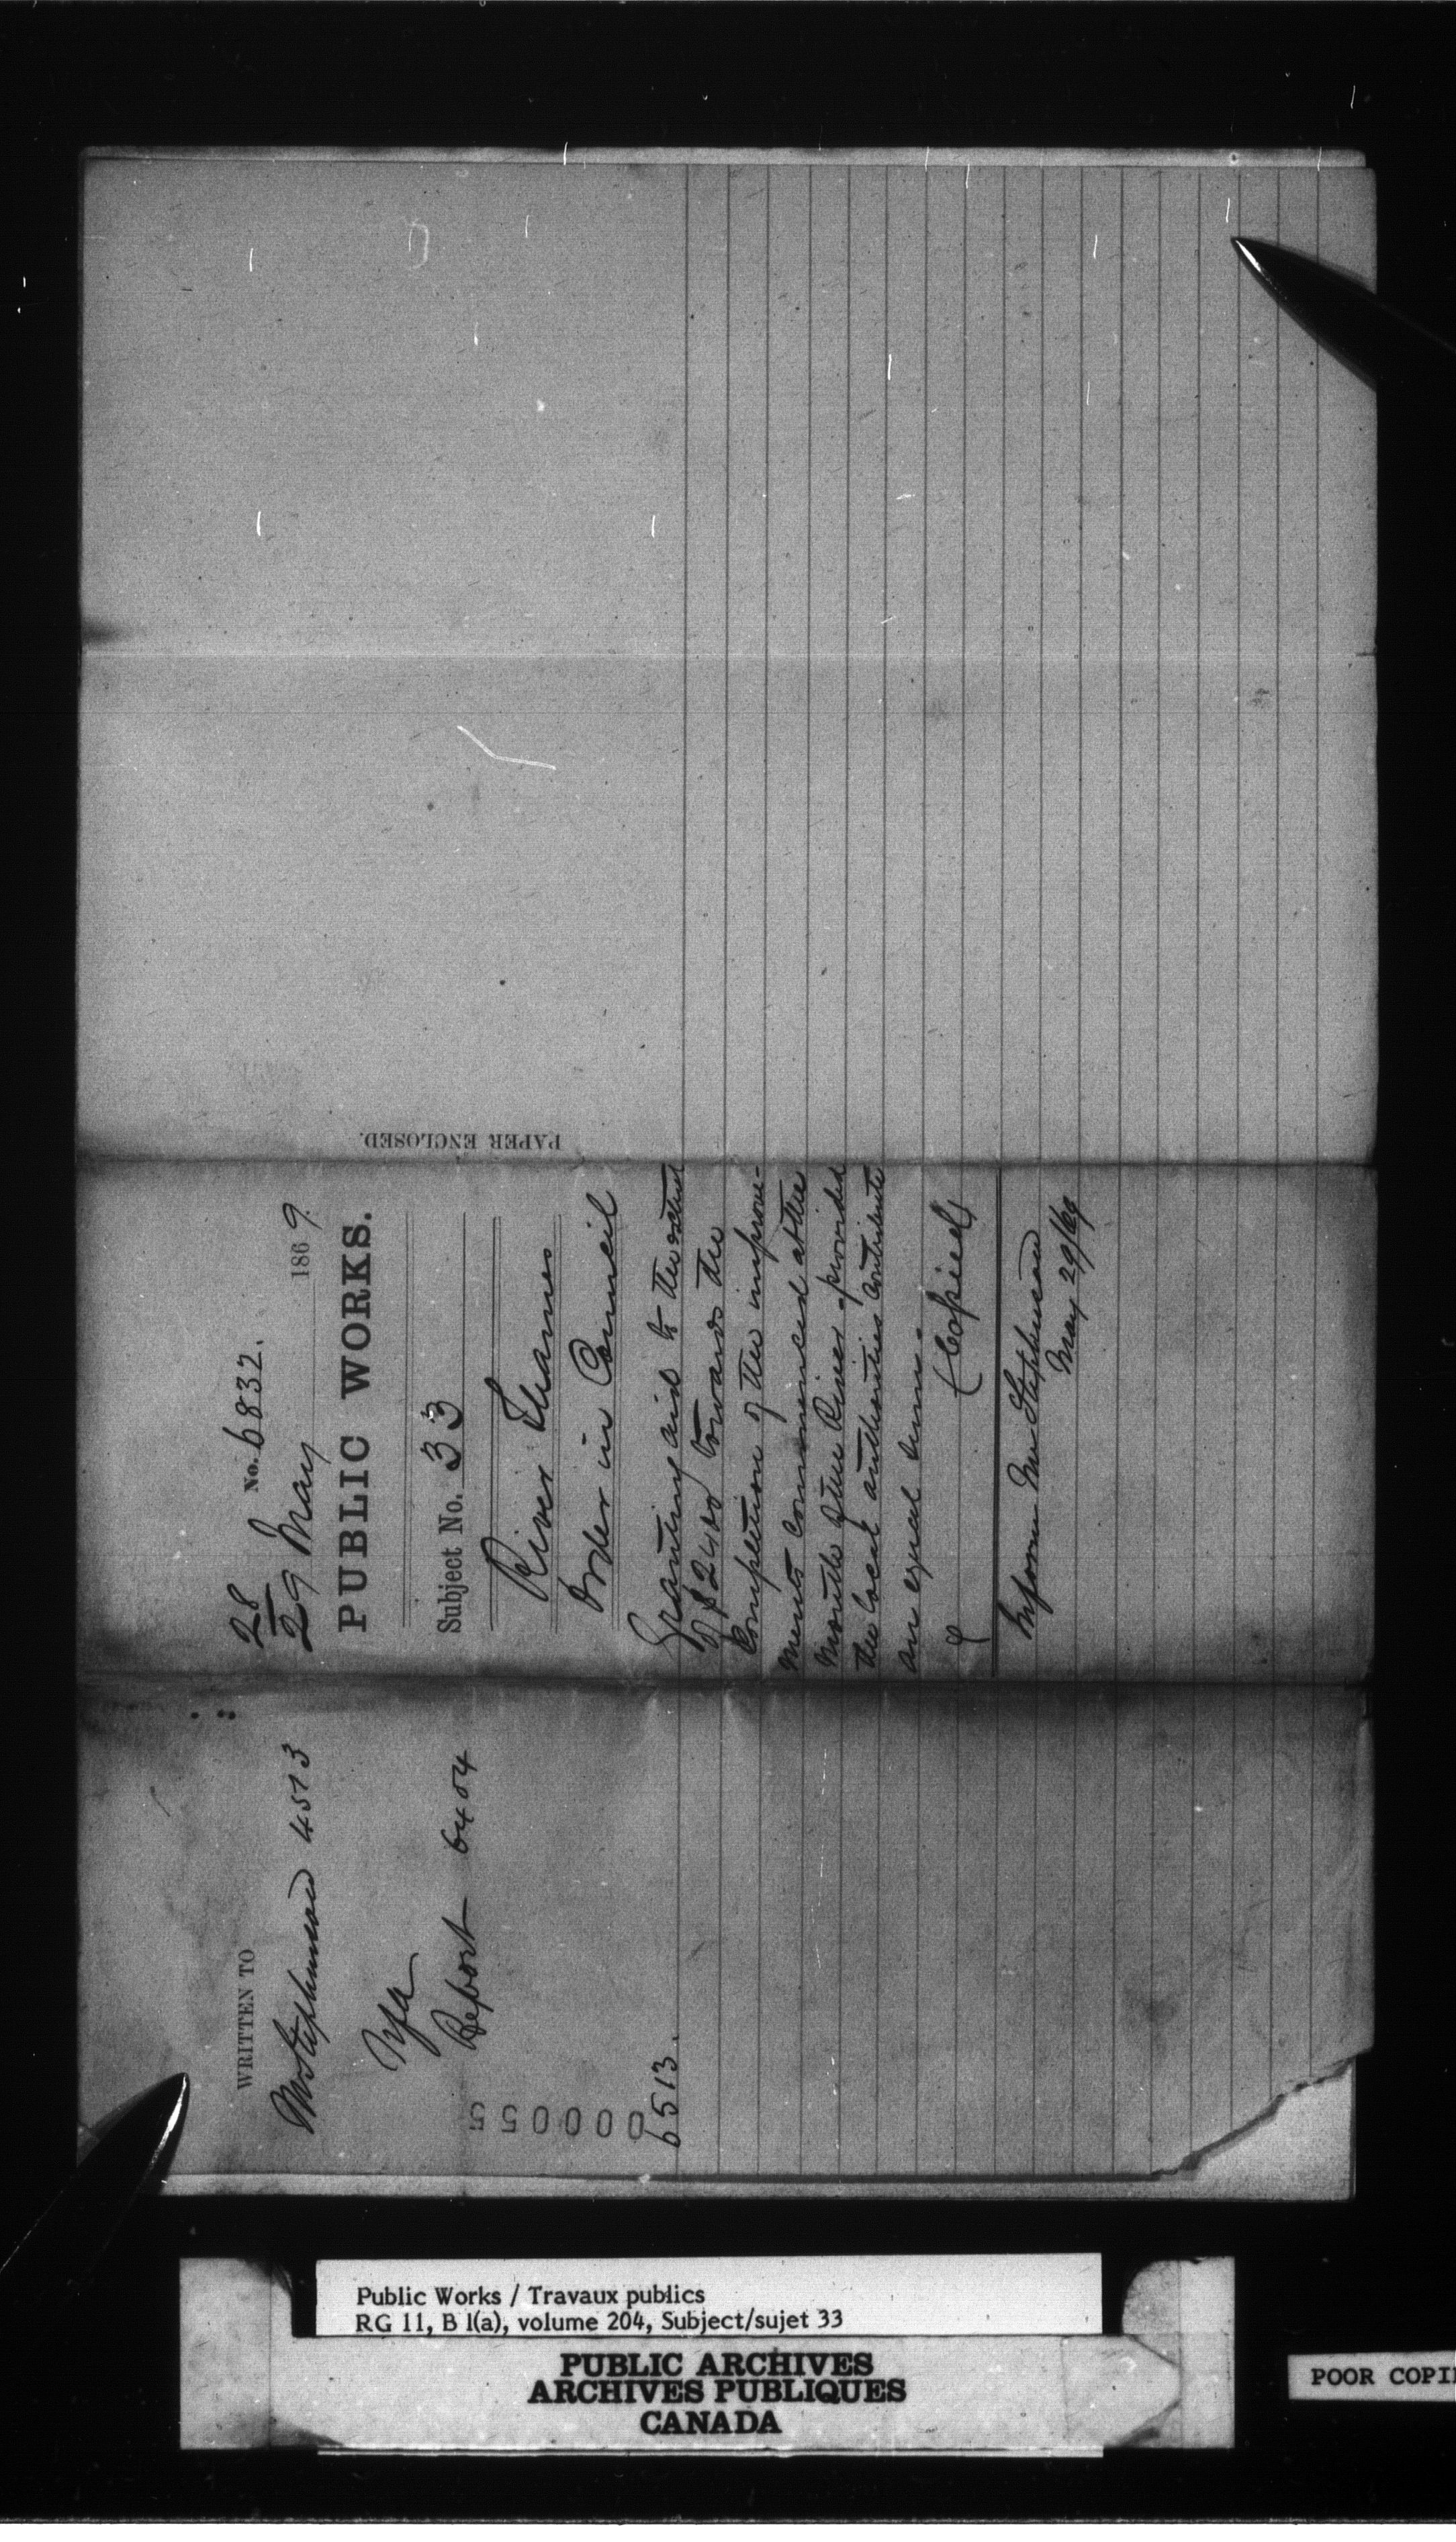 No. 6832.
28
29 May 1869
PUBLIC WORKS.
Subject No. 33
River Thames
Order in Council
Granting aid to the extent
of $2400 towards the
Completion of the improve-
ments commenced at the
Mouth of the River - provided
the local authorities contribute
an equal sum.
(Copied)
Inform Mr Stephenson
May 29/69
PAPER ENCLOSED.
WRITTEN TO
Mr Stephenson 4513
Report 6404
0000055
6513.
Public Works / Travaux publics
RG 11, B 1(a), volume 204, Subject/sujet 33
PUBLIC ARCHIVES
ARCHIVES PUBLIQUES
CANADA
POOR COPI